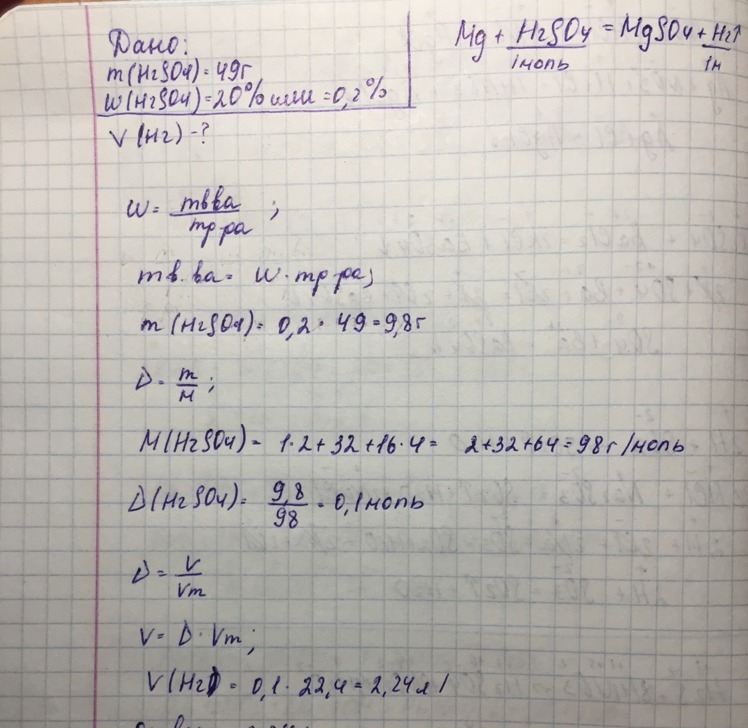 Дано:
m(H2SO4)=49г
w(H2SO4)=20% или =0,2%
V(H2)-?
Mg + H2SO4 = MgSO4 + H2↑
1моль 1м
w= mв ва / mр ра ;
mв.ва= w·mр ра;
m(H2SO4)= 0,2·49=9,8г
D= m/M ;
M(H2SO4)= 1·2+32+16·4= 2+32+64=98г/моль
D(H2SO4)= 9,8/98 = 0,1моль
D= V/Vm
V= D·Vm;
V(H2)= 0,1·22,4=2,24л